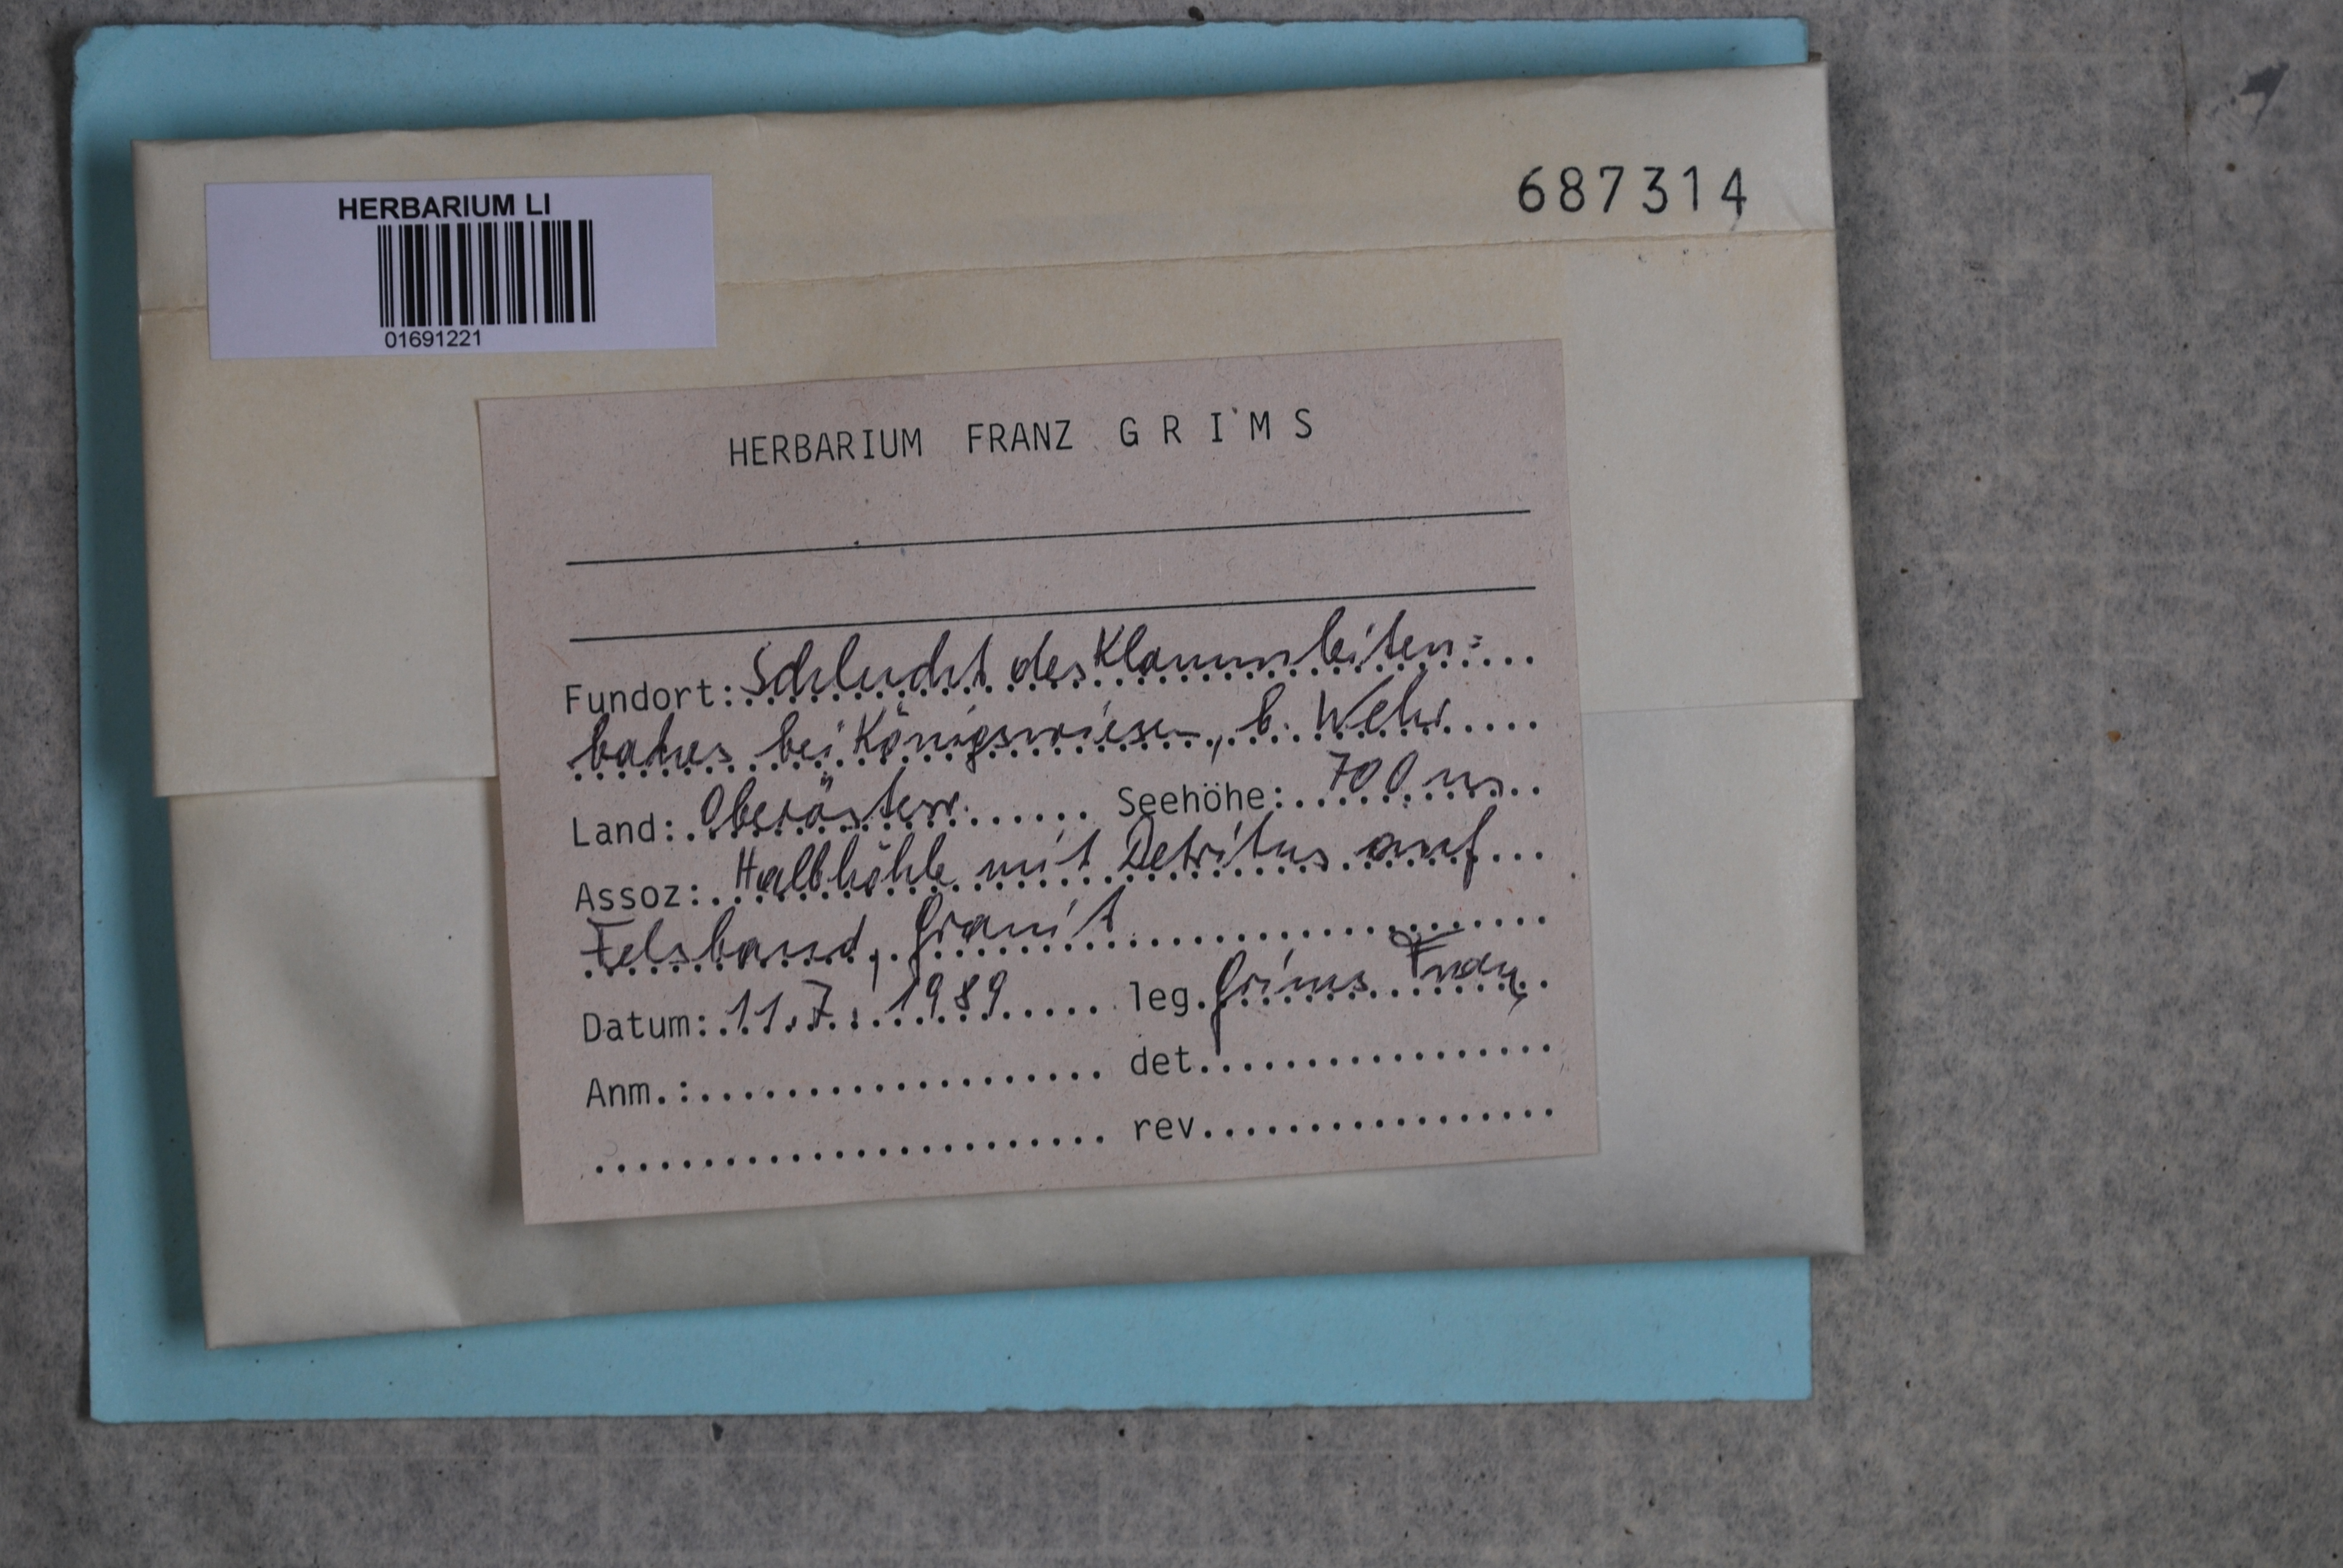 HERBARIUM LI
687314
01691221
HERBARIUM FRANZ GRIMS
Fundort: Schlucht des Klammleiten=
baches bei Königswiesen, b. Wehr
Land: Oberösterr. Seehöhe: 700 m
Assoz: Halbhöhle mit Detritus auf
Felsband, Granit
Datum: 11.7.1989 leg. Grims Franz
Anm.: det.
rev.